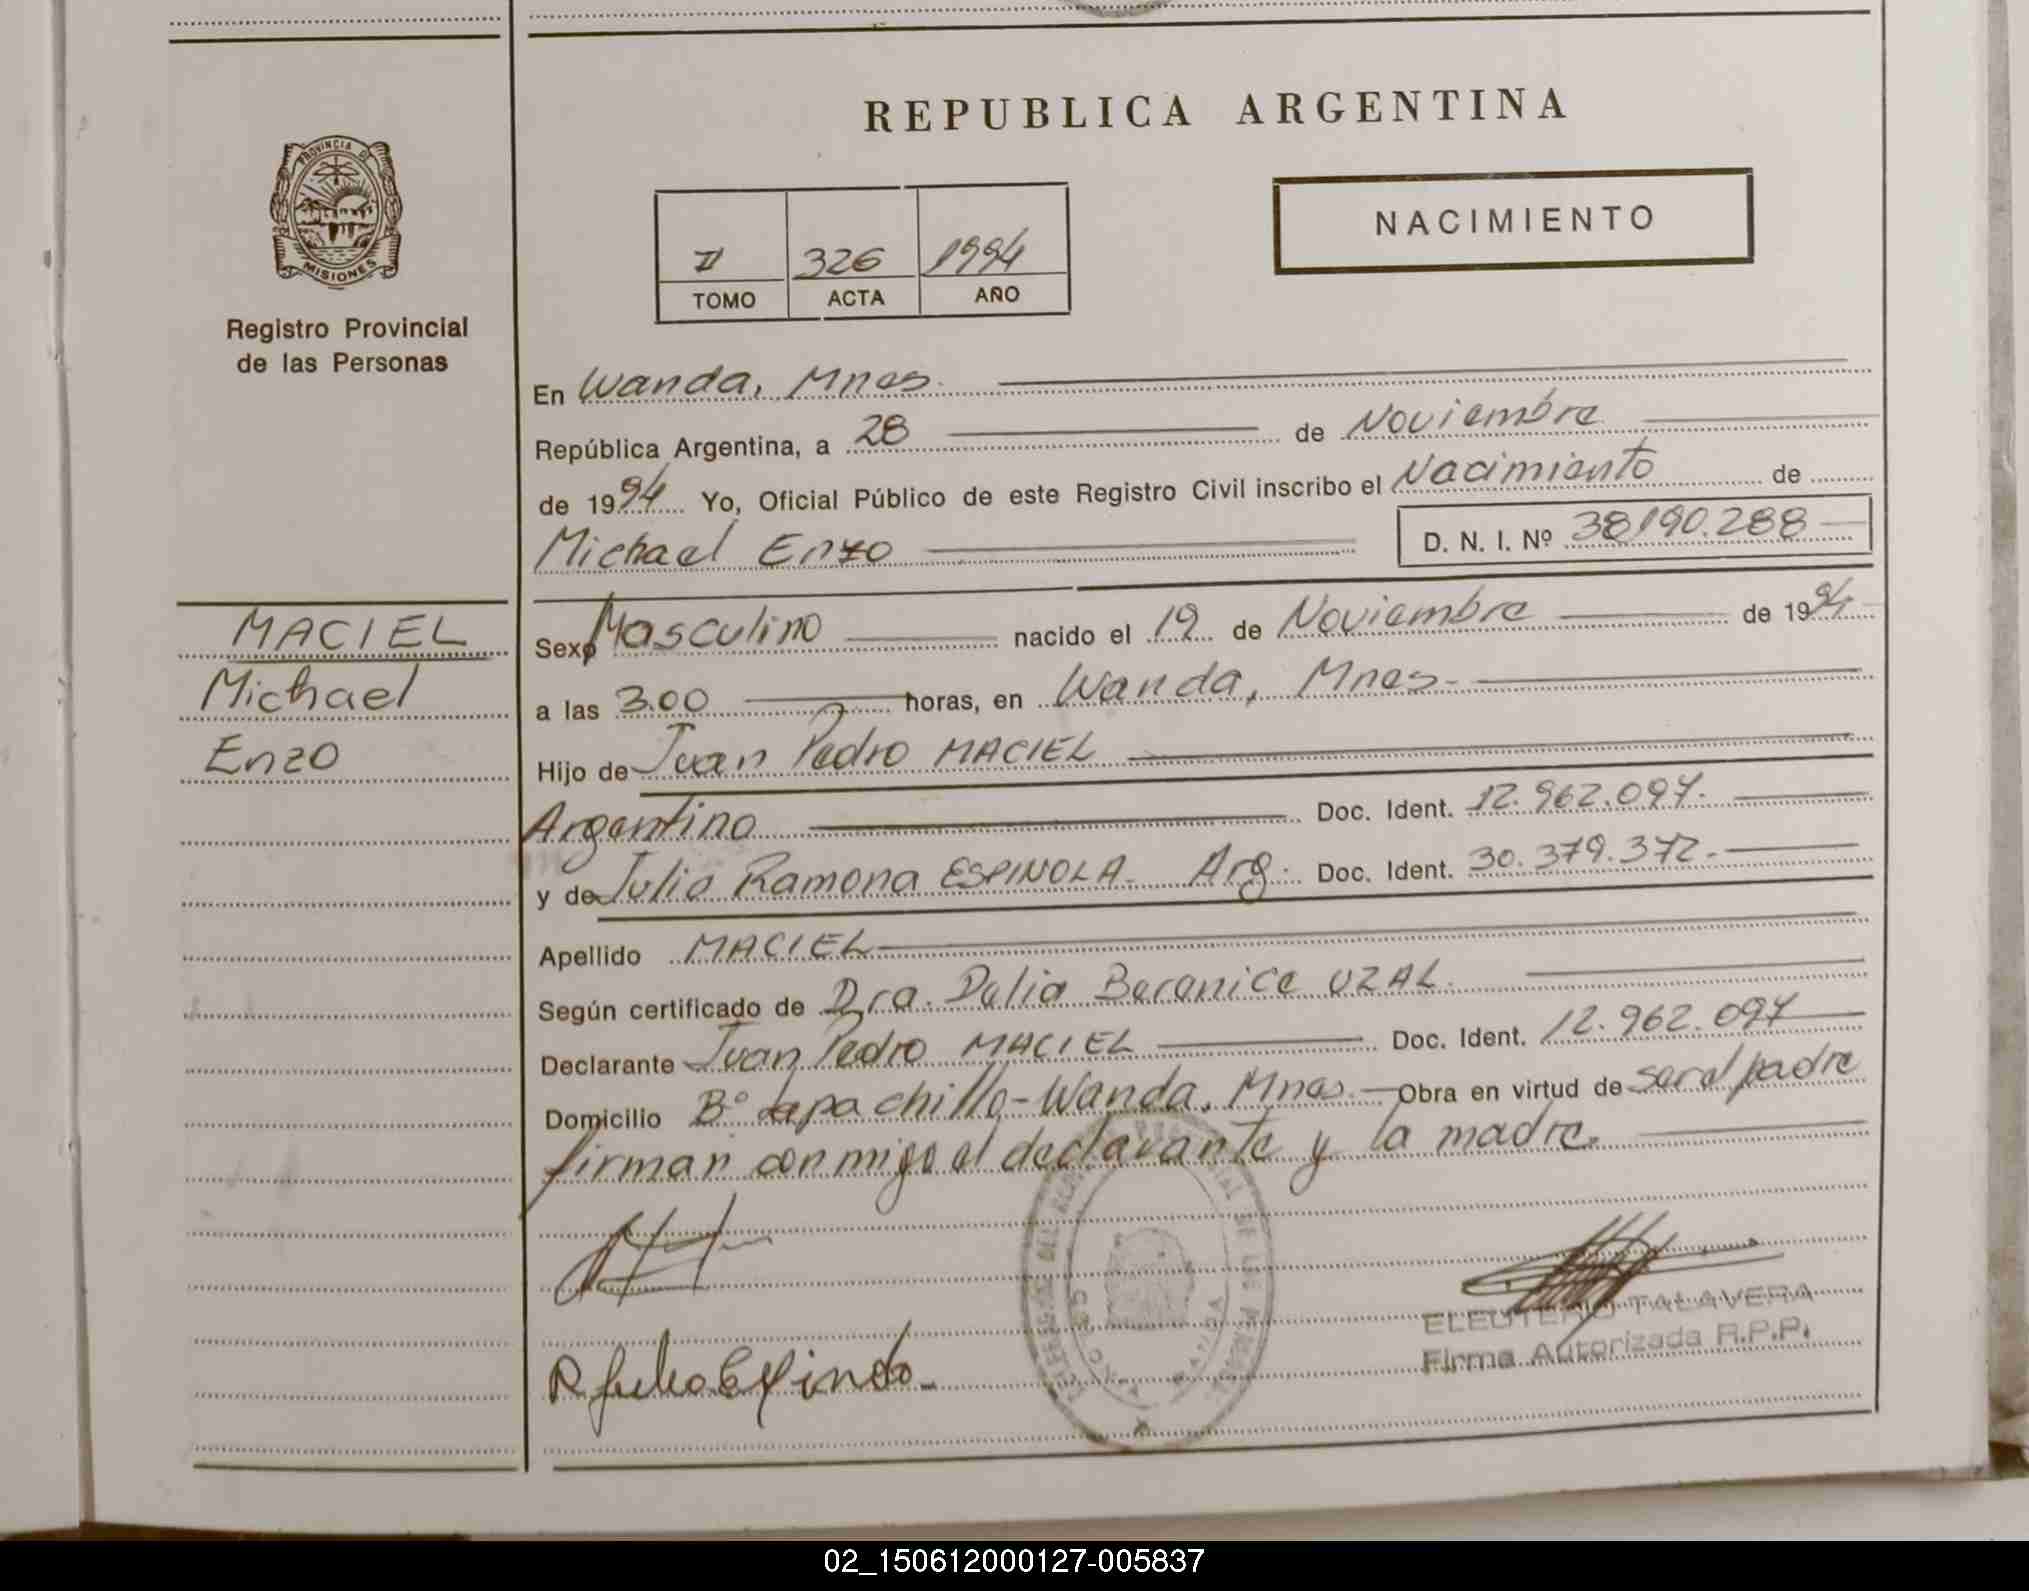 REPUBLICA ARGENTINA
PROVINCIA DE
MISIONES
Registro Provincial
de las Personas
II 326 1994
TOMO ACTA AÑO
NACIMIENTO
En Wanda, Mnes.
República Argentina, a 28 de Noviembre
de 1994 Yo, Oficial Público de este Registro Civil inscribo el Nacimiento de
Michael Enzo D. N. I. Nº 38190.288
MACIEL
Michael
Enzo
Sexo Masculino nacido el 19 de Noviembre de 1994
a las 3.00 horas, en Wanda, Mnes.
Hijo de Juan Pedro MACIEL
Argentino Doc. Ident. 12.962.097.
y de Julia Ramona ESPINOLA. Arg. Doc. Ident. 30.379.372.
Apellido MACIEL
Según certificado de Dra. Delia Berenice UZAL.
Declarante Juan Pedro MACIEL Doc. Ident. 12.962.097
Domicilio Bº chillo-Wanda, Mnes. Obra en virtud de ser el padre
firman conmigo el declarante y la madre.
ELEUTERIO TALAVERA
Firma Autorizada R.P.P.
02_150612000127-005837